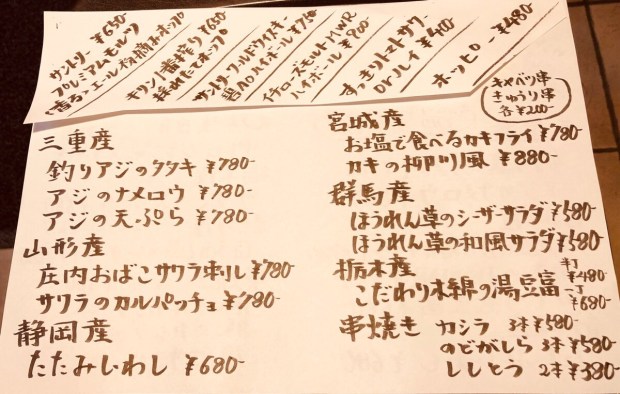 サントリー ¥650-
プレミアムモルツ
香るエール 初摘みホップ
キリン一番搾り ¥650-
採れたてホップ
サントリーワールドウイスキー
碧Aoハイボール ¥750-
ハイボール ¥900-
すっきりトマトサワー
orハイ ¥410-
ホッピー ¥480-
キャベツ串
きゅうり串
各¥200-
三重産
釣りアジのタタキ ¥780-
アジのナメロウ ¥780-
アジの天ぷら ¥780-
山形産
庄内おばこサワラ刺し ¥780-
サワラのカルパッチョ ¥780-
静岡産
たたみいわし ¥680-
宮城産
お塩で食べるカキフライ ¥780
カキの柳川風 ¥880-
群馬産
ほうれん草のシーザーサラダ ¥580
ほうれん草の和風サラダ ¥580-
栃木産
こだわり木綿の湯豆富 半丁 ¥480- 一丁 ¥680-
串焼き カシラ 3本¥580-
のどがしら 3本¥580
ししとう 2本¥380